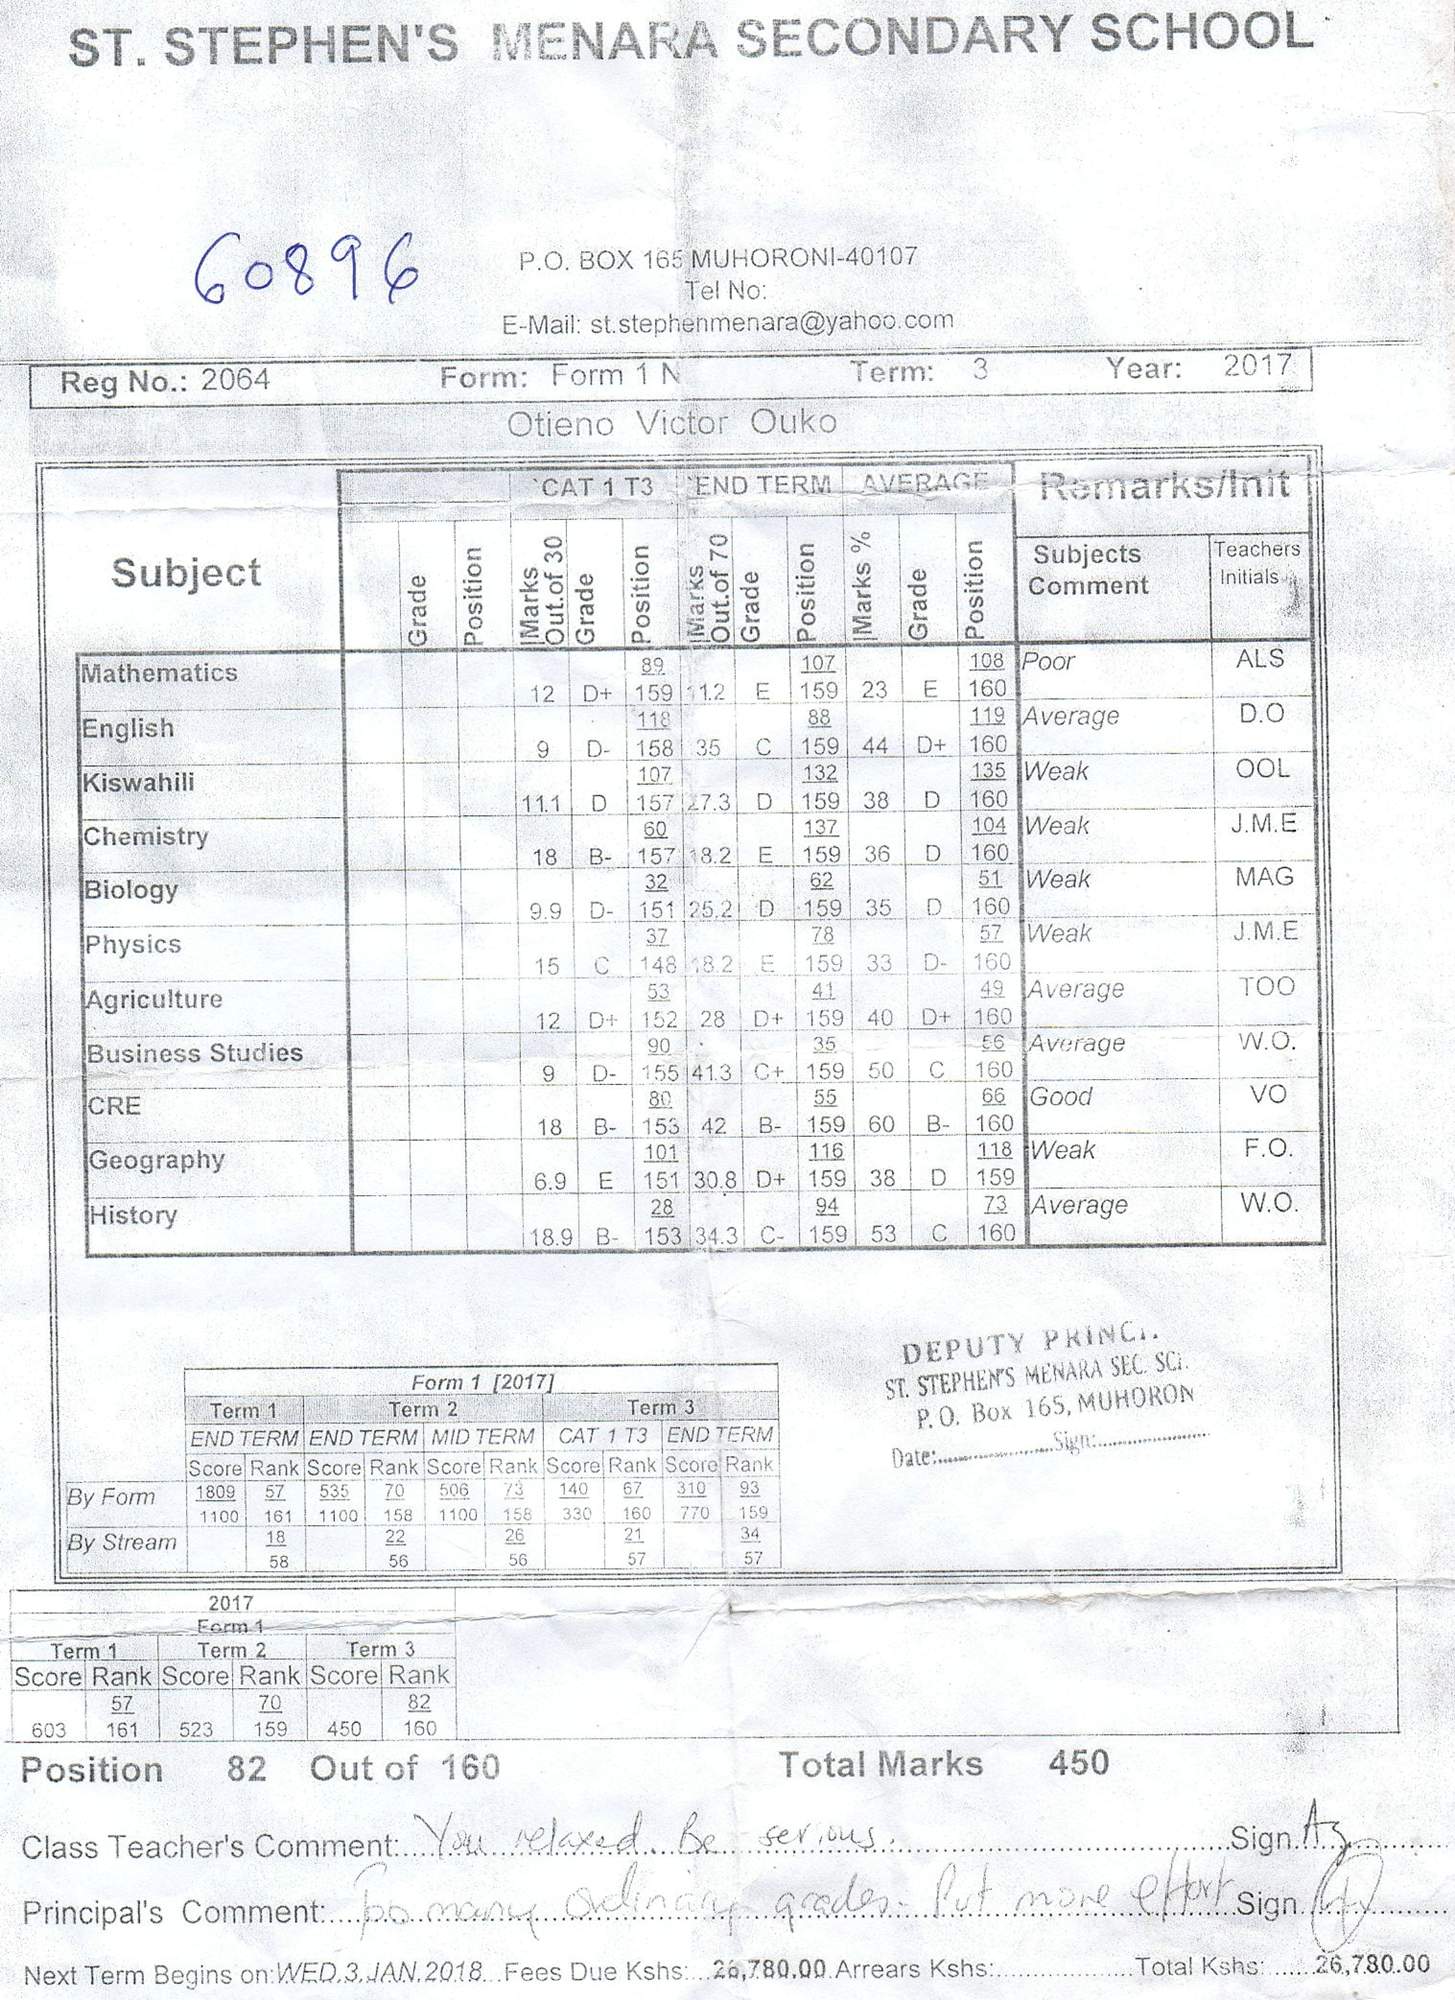 ST. STEPHEN'S MENARA SECONDARY SCHOOL
60896
P.O. BOX 165 MUHORONI-40107
Tel No:
E-Mail: st.stephenmenara@yahoo.com
Reg No.: 2064 Form: Form 1 N Term: 3 Year: 2017
Otieno Victor Ouko
CAT 1 T3 END TERM AVERAGE Remarks/Init
Subject Grade Position Marks Out.of 30 Grade Position Marks Out.of 70 Grade Position Marks % Grade Position Subjects Comment Teachers Initials
89 107 108
Mathematics 12 D+ 159 11.2 E 159 23 E 160 Poor ALS
118 88 119
English 9 D- 158 35 C 159 44 D+ 160 Average D.O
107 132 135
Kiswahili 11.1 D 157 27.3 D 159 38 D 160 Weak OOL
60 137 104
Chemistry 18 B- 157 18.2 E 159 36 D 160 Weak J.M.E
32 62 51
Biology 9.9 D- 151 25.2 D 159 35 D 160 Weak MAG
37 78 57
Physics 15 C 148 18.2 E 159 33 D- 160 Weak J.M.E
53 41 49
Agriculture 12 D+ 152 28 D+ 159 40 D+ 160 Average TOO
90 35 56
Business Studies 9 D- 155 41.3 C+ 159 50 C 160 Average W.O.
80 55 66
CRE 18 B- 153 42 B- 159 60 B- 160 Good VO
101 116 118
Geography 6.9 E 151 30.8 D+ 159 38 D 159 Weak F.O.
28 94 73
History 18.9 B- 153 34.3 C- 159 53 C 160 Average W.O.
DEPUTY PRINCI.
ST. STEPHEN'S MENARA SEC. SCH.
P. O. Box 165, MUHORON
Date:..................Sign:..................
Form 1 [2017]
Term 1 Term 2 Term 3
END TERM END TERM MID TERM CAT 1 T3 END TERM
Score Rank Score Rank Score Rank Score Rank Score Rank
By Form 1809 57 535 70 506 73 140 67 310 93
1100 161 1100 158 1100 158 330 160 770 159
By Stream 18 22 26 21 34
58 56 56 57 57
2017
Form 1
Term 1 Term 2 Term 3
Score Rank Score Rank Score Rank
57 70 82
603 161 523 159 450 160
Position 82 Out of 160 Total Marks 450
Class Teacher's Comment: You relaxed. Be serious. Sign
Principal's Comment: Too many ordinary grades - Put more effort Sign
Next Term Begins on: WED.3.JAN.2018 Fees Due Kshs: 26,780.00 Arrears Kshs: Total Kshs: 26,780.00